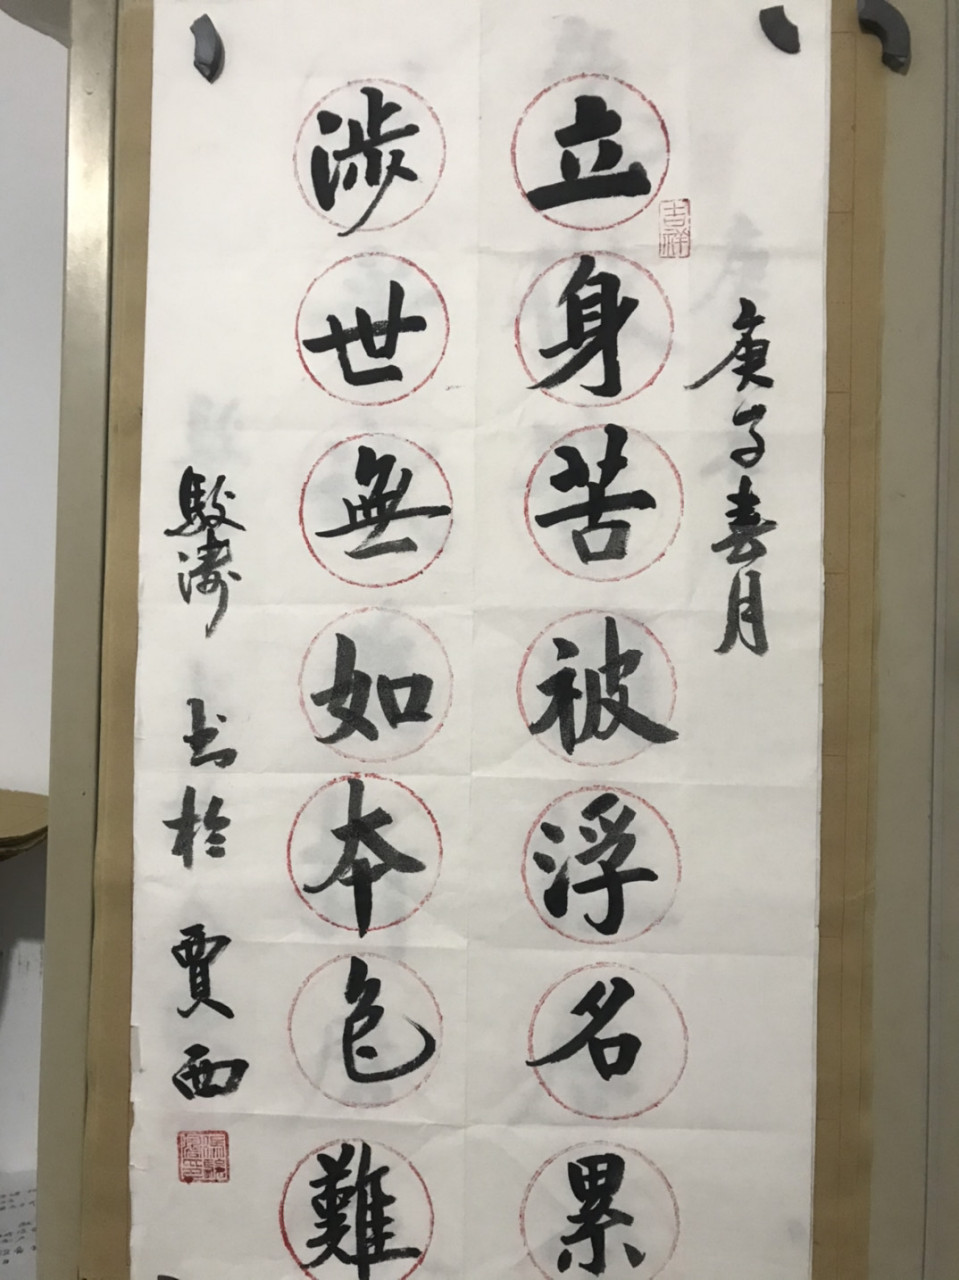 庚子春月
吉祥
立身苦被浮名累
涉世無如本色難
駿濤 书於 賈西